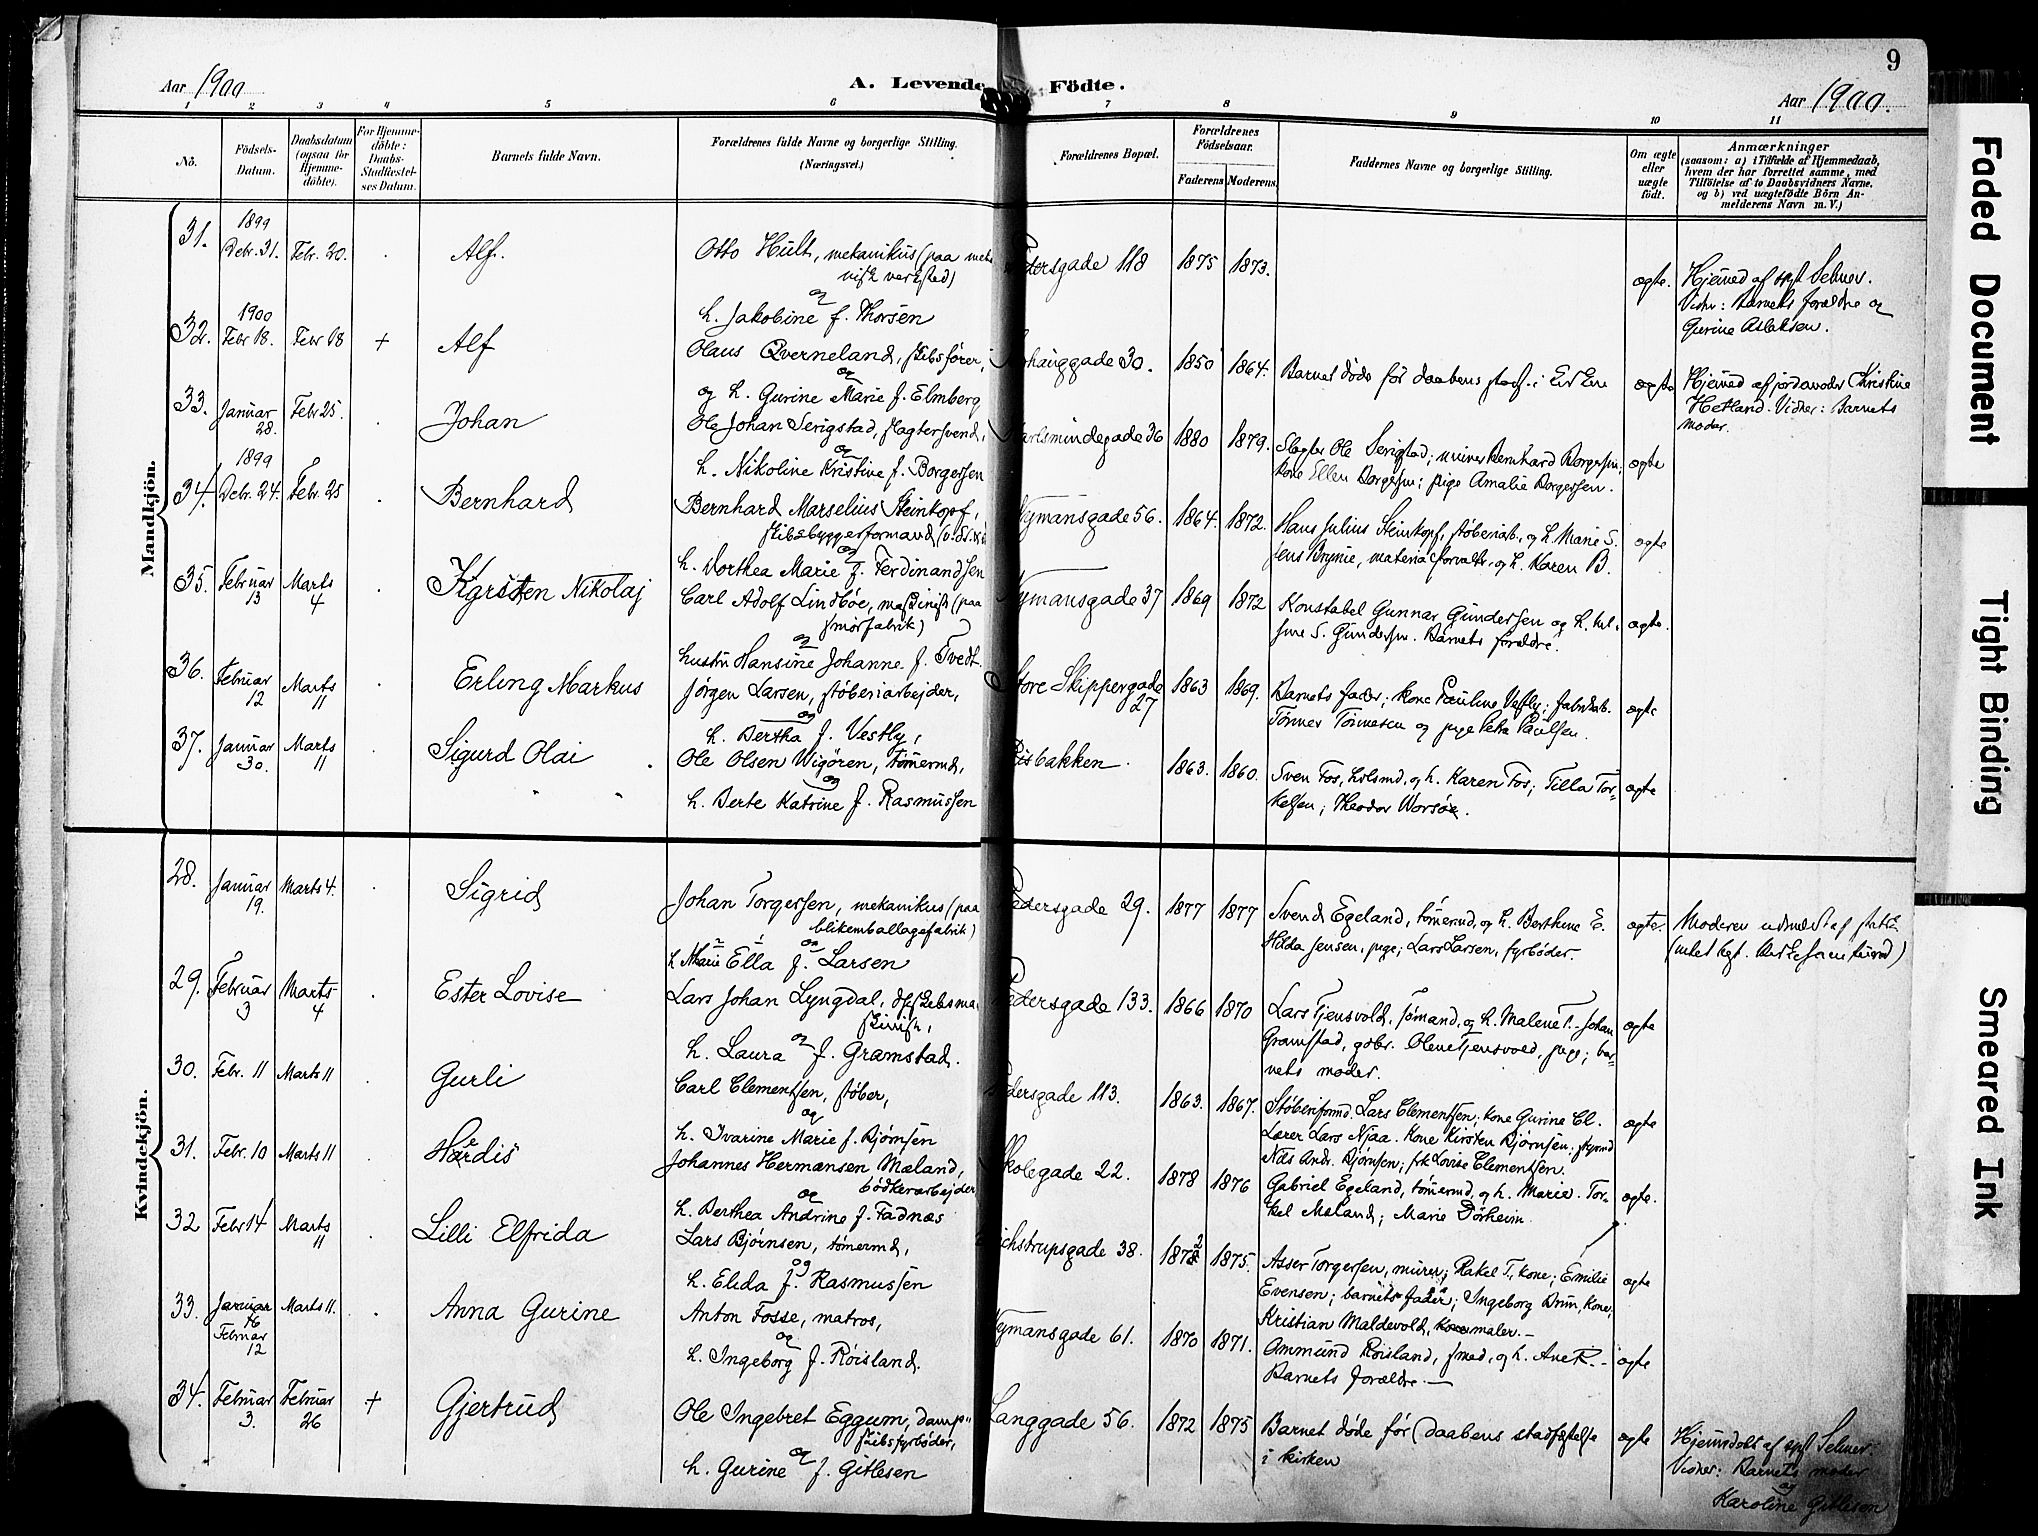 9
Aar 1900
A. Levende Födte.
Aar 1900.
1 2 3 4 5 6 7 8 9 10 11
No.
Födsels-Datum.
Daabsdatum (ogsaa for Hjemme-döbte).
For Hjemme-döbte: Daabs-Stadfæstel-ses Datum.
Barnets fulde Navn.
Forældrenes fulde Navne og borgerlige Stilling. (Næringsvei.)
Forældrenes Bopæl.
Forældrenes Födselsaar.
Faderens Moderens
Faddernes Navne og borgerlige Stilling.
Om ægte eller uægte födt.
Anmærkninger
(saasom: a) i Tilfælde af Hjemmedaab, hvem der har forrettet samme, med Tilföielse af to Daabsvidners Navne, og b) ved uægtefödte Börn An-melderens Navn m. V.)
Mandkjön.
31. 1899 Debr. 31. Febr. 20. Alf. Otto Hult, mekanikus (paa
verksted)
og
h. Jakobine f. Thorsen
Pedersgade 118 1875 1873. ægte.
Vidner: Barnets forældre og
Gurine Aslaksen.
32. 1900 Febr 18. Febr 18 + Alf Olaus Qverneland, skibsfører,
og
og h. Gurine Marie f. Elmberg
30. 1850 1864. Barnet døde før daabens stadf. i kirken ægte
Hjemmed af jordmoder Kristine
Hetland. Vidner: Barnets
moder.
33. Januar 28. Febr 25. Johan Ole Johan Serigstad, slagtersvend,
og
h. Nikoline Kristine f. Borgersen
Karlsmindegade 36 1880 1879. Slagter Ole Serigstad; murer Bernhard Borgersen,
kone Ellen Borgersen; pige Amalie Borgersen. ægte
34. 1899 Debr. 24. Febr. 25 Bernhard Bernhard Marselius Steinkopf,
skibsbyggerformand
og
h. Dorthea Marie f. Ferdinandsen
Nymansgade 56. 1864. 1872. Hans Julius Steinkopf, støberiarb., og h. Marie S.
Jens Brynie, materialforvalt., og h. Karen B. ægte
35. Februar 13 Marts 4 Karsten Nikolaj Carl Adolf Lindbøe, maskinist (paa
smørfabrik)
og
hustru Hansine Johanne f. Tvedt.
Nymansgade 37 1869 1872 Konstabel Gunnar Gundersen og h.
S. Gundersen. Barnets forældre. ægte.
36. Februar 12 Marts 11 Erling Markus Jørgen Larsen, støberiarbejder,
og
h. Bertha f. Vestly,
Store Skippergade 27 1863 1869. Barnets fader; kone Pauline Vestly; fabrikarb.
Tønnes Tønnesen og pige Petra Paulsen. ægte
37. Januar 30. Marts 11 Sigurd Olai Ole Olsen Wigøren, tømermd,
og
h. Berte Katrine f. Rasmussen
Risbakken. 1863. 1860. Sven Fos, losmd, og h. Karen Fos; Tilla Tor-
kelsen; Theodor Worsøe. ægte
Kvindekjön.
28. Januar 19. Marts 4. Sigrid Johan Torgersen, mekanikus (paa
blikemballagefabrik)
og
h Marie Ella f. Larsen
Pedersgade 29. 1877 1877 Svend Egeland, tømermd, og h. Berthine E.
Hilda Jensen, pige; Lars Larsen, fyrbøder. ægte.
Moderen udmeldt af statsk.
29. Februar 3 Marts 4 Ester Lovise Lars Johan Lyngdal, dpskibsma-
skinist,
og
h. Laura f. Gramstad.
Pedersgade 133. 1866 1870 Lars Tjensvold, sømand, og h. Malene T. - Johan
Gramstad, gdbr. Olene Tjensvold, pige; bar-
nets moder. ægte
30. Febr. 11 Marts 11 Gurli Carl Clementsen, støber,
og
h. Ivarine Marie f. Bjørnsen
Pedersgade 113. 1863. 1867. Støberiformd. Lars Clementsen; kone Gurine Cl.
Lærer Lars Njaa. Kone Kirsten Bjørnsen; styrmd
Nils Andr. Bjørnsen; frk Lovise Clementsen. ægte
31. Febr. 10 Marts 11 Herdis Johannes Hermansen Mæland,
bødkerarbejder
og
h. Berthea Andrine f. Fadnæs
Skolegade 22. 1878 1876 Gabriel Egeland, tømermd, og h. Marie. Tor-
kel Mæland; Marie Dørheim. ægte.
32 Febr 14 Marts 11 Lilli Elfrida Lars Bjørnsen, tømermd,
og
h. Elida f. Rasmussen
Vichstrupsgade 38. 1872 1875. Asser Torgersen, murer; Rakel T., kone; Emilie
Evensen; barnets fader; Ingeborg Brun, kone,
Kristian Maldevold, kone maler. — ægte
33. Januar 16 Februar 12 Marts 11. Anna Gurine Anton Fosse, matros,
og
h. Ingeborg f. Røisland.
Nymansgade 61. 1870 1871. Ommund Røisland, smed, og h. Ane R. -
Barnets forældre — ægte
34. Februar 3. Februar 26 + Gjertrud Ole Ingebret Eggum, damp-
skibsfyrbøder,
og
h. Gurine f. Gitlesen
Langgade 56. 1872 1875 Barnet døde før daabens stadfæstelse
i kirken ægte
Hjemmedøbt af spst Selmer.
Vidner: Barnets moder
og
Karoline Gitlesen
Faded Document
Tight Binding
Smeared Ink